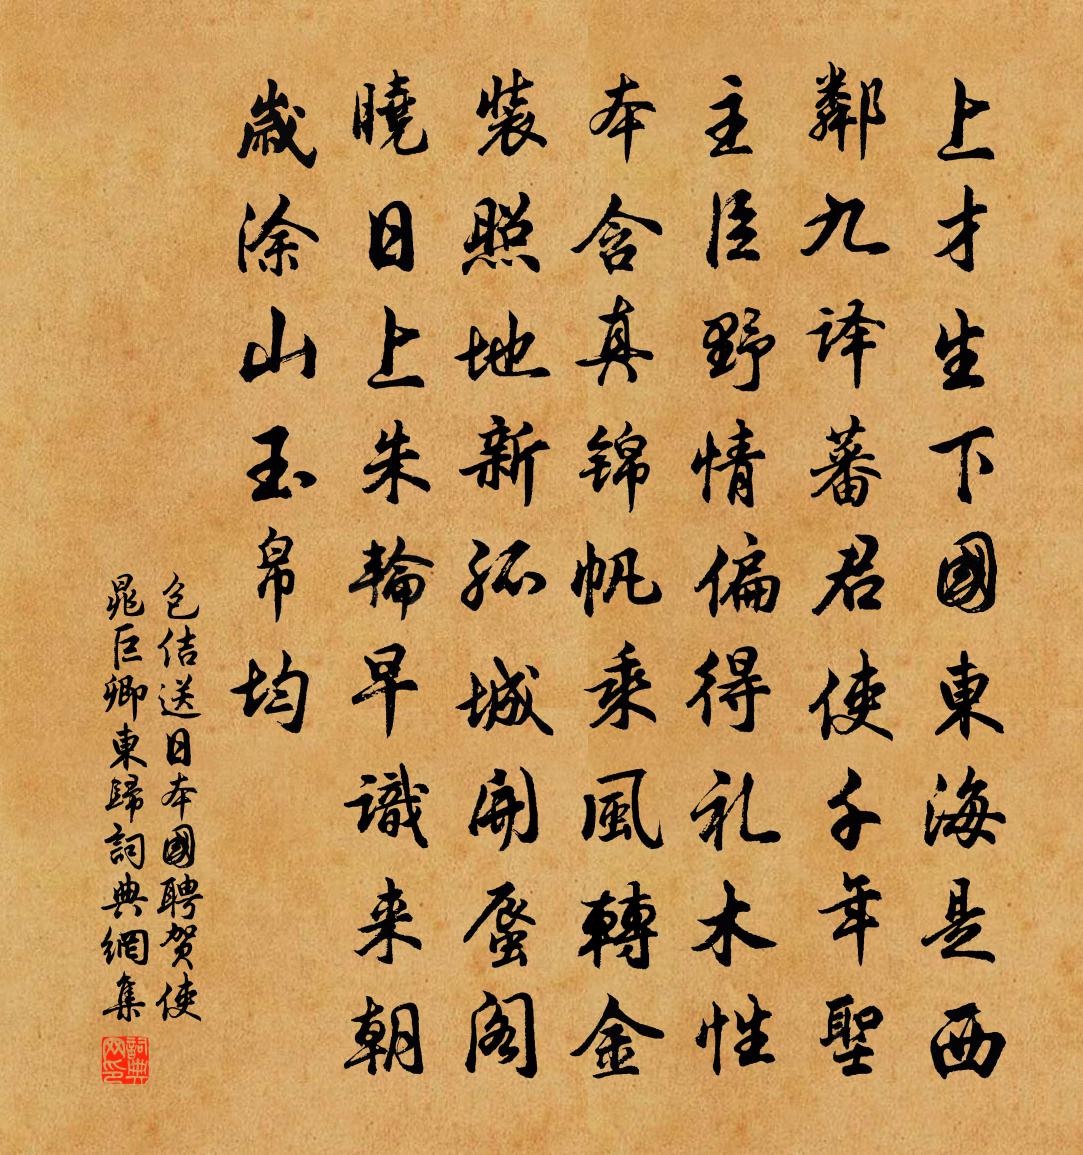 上才生下國東海是西
鄰九译蕃君使千年聖
主臣野情偏得礼木性
本含真锦帆乘風轉金
裝照地新孤城開蜃阁
曉日上朱輪早識来朝
歲涂山玉帛均
包佶送日本國聘贺使
晁巨卿東歸詞典網集
詞典网印